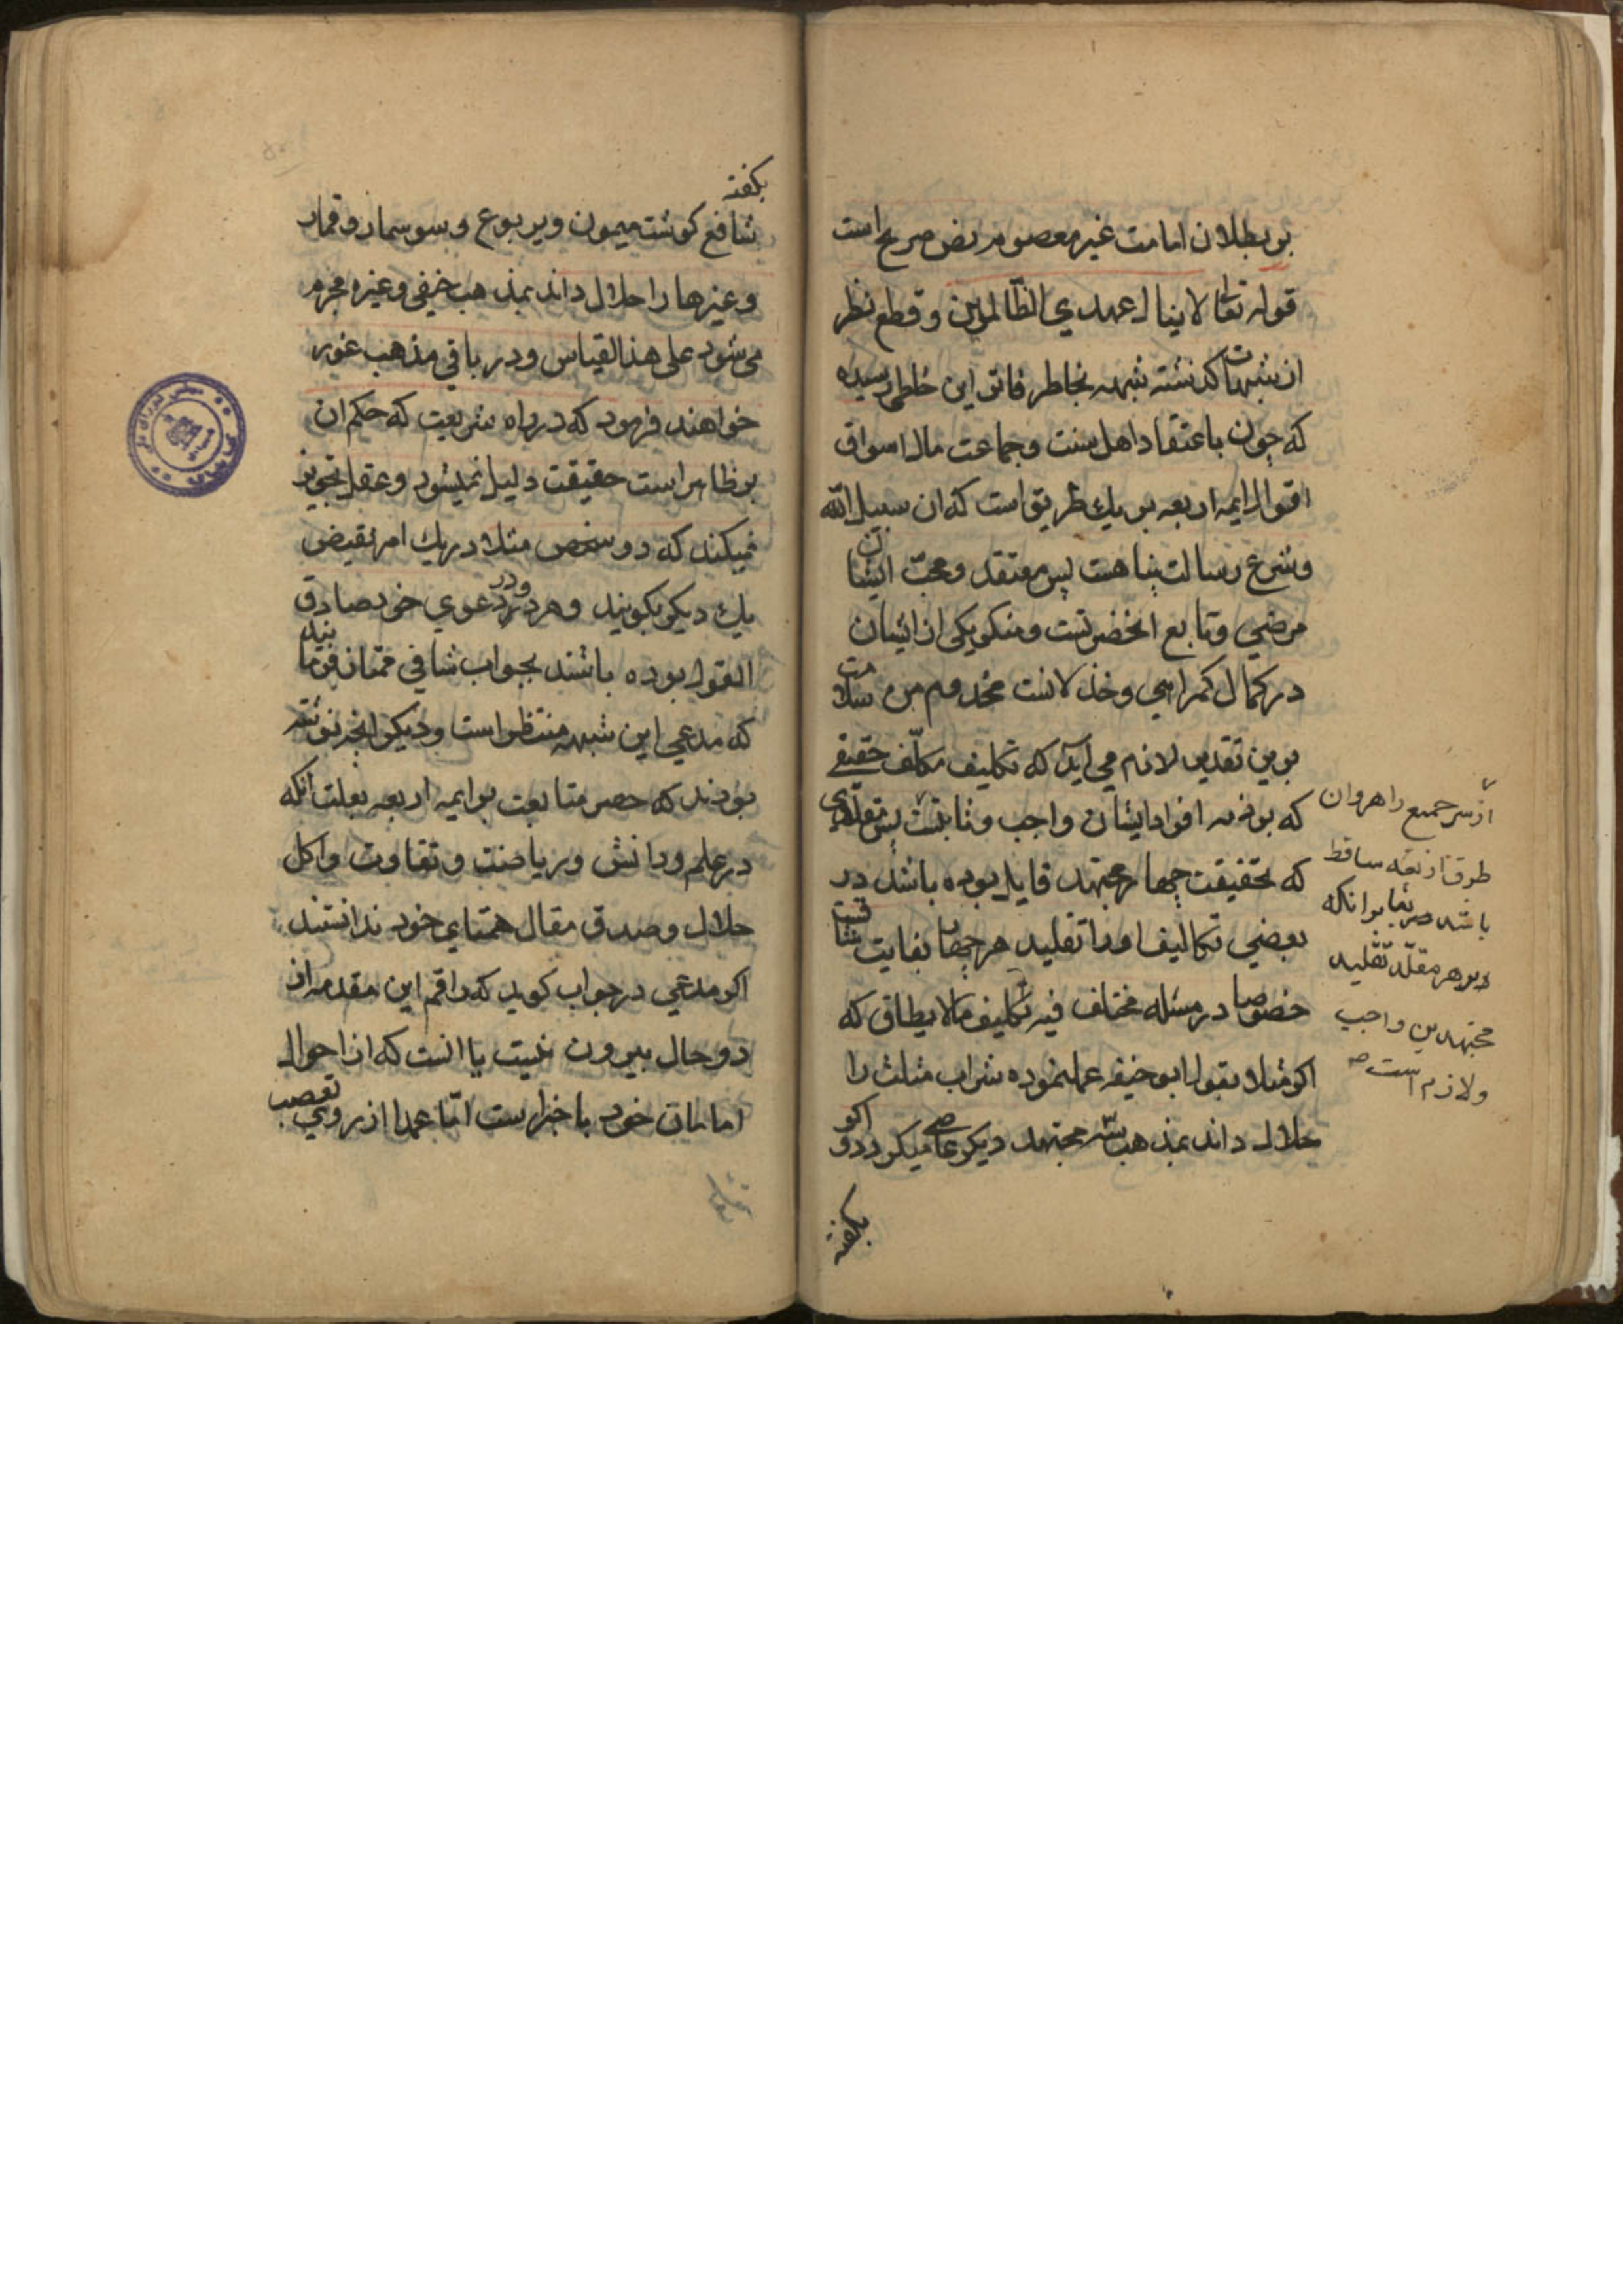 بر بطلان امامت غیر معصوم نص صریح است
قوله تعالی لا ینال عهدی الظالمین و قطع نظر
از شبهات کذشته شبهه بخاطر فاتر این خاطی رسیده
که چون باعتقاد اهل سنت و جماعت مال اسواق
اقوال ایمه اربعه بر یك طریق است که ان سبیل الله
و شرع رسالت پناهست پس معتقد و محب ایشان
مرضی و تابع انحضرتست و منکر یکی از ایشان
در کمال کمراهی و خذلانست مخدوم من سلامت
برین تقدیر لازم می آید که تکلیف مکلف حقیقی
که بر ذمه افراد ایشان واجب و ثابتست پس مقلدی
که بحقیقت چهار مجتهد قایل بوده باشد در
بعضی تکالیف او را تقلید هر چهار بغایت
خصوصا در مسئله مختلف فیه تکلیف مالا یطاق که
اکر مثلا بقول ابو حنیفه عمل نموده شراب مثلث را
حلال داند بمذهب سه مجتهد دیکر عاصی میکردد و اکر
بکفته
از سر جمیع راهروان
طرق اربعه ساقط
باشد بنا بر انکه
بر هر مقلد تقلید
مجتهدین واجب
و لازم است صح
بکفته
شافع کوشت میمون و یربوع و سوسمار و قمار
و غیرها را حلال داند بمذهب حنفی و غیره مجرم
می شود علی هذا القیاس و در باقی مذهب غور
خواهند فرمود که در راه شریعت که حکم ان
بر ظاهر است حقیقت دلیل نمیشود و عقل تجویز
نمیکند که دو شخص مثلا در یك امر نقیض
یك دیکر بکویند و هر دو در دعوی خود صادق
القول بوده باشند بجواب شافی ممتاز فرمایند
که مدعی این شبهه منتظر است و دیکر انچه نوشته
بودند که حصر متابعت بر ایمه اربعه بعلت انکه
در علم و دانش و ریاضت و تقاوت و اکل
حلال و صدق مقال همتای خود نداشتند
اکر مدعی در جواب کوید که راقم این مقدمه از
دو حال بیرون نیست یا انست که از احوال
امامان خود با خبر است اما عمدا از روی تعصب